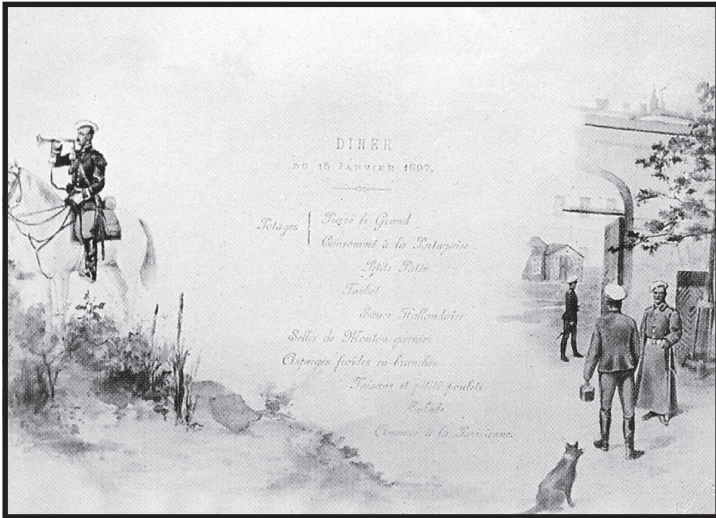 DINER
DU 15 JANVIER 1897.
Potages
Pierre le Grand
Consommé à la Portugaise
Petits Pâtés
Turbot
Sauce Hollandaise
Selles de Mouton garnies
Asperges froides en branches
Faisans et petits poulets
Salade
à la Parisienne.